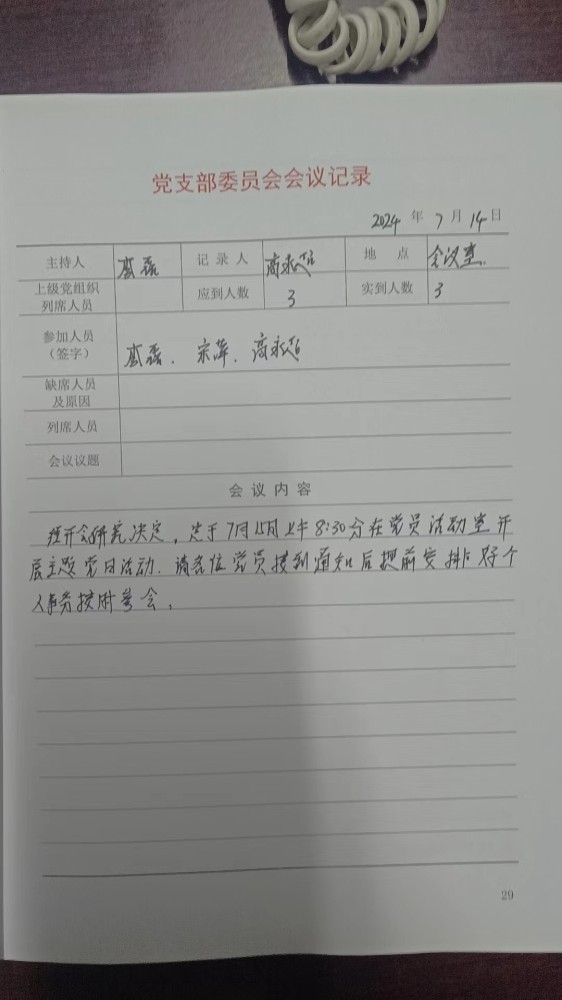 党支部委员会会议记录
2024 年 7 月 14 日
主持人 记录人 高永 地点 会议室
上级党组织列席人员 应到人数 3 实到人数 3
参加人员(签字) 宋萍、高永
缺席人员及原因
列席人员
会议议题
会议内容
经开会研究决定,定于7月15日上午8:30分在党员活动室开
展主题党日活动.请各位党员接到通知后提前安排好个
人事务按时参会。
29